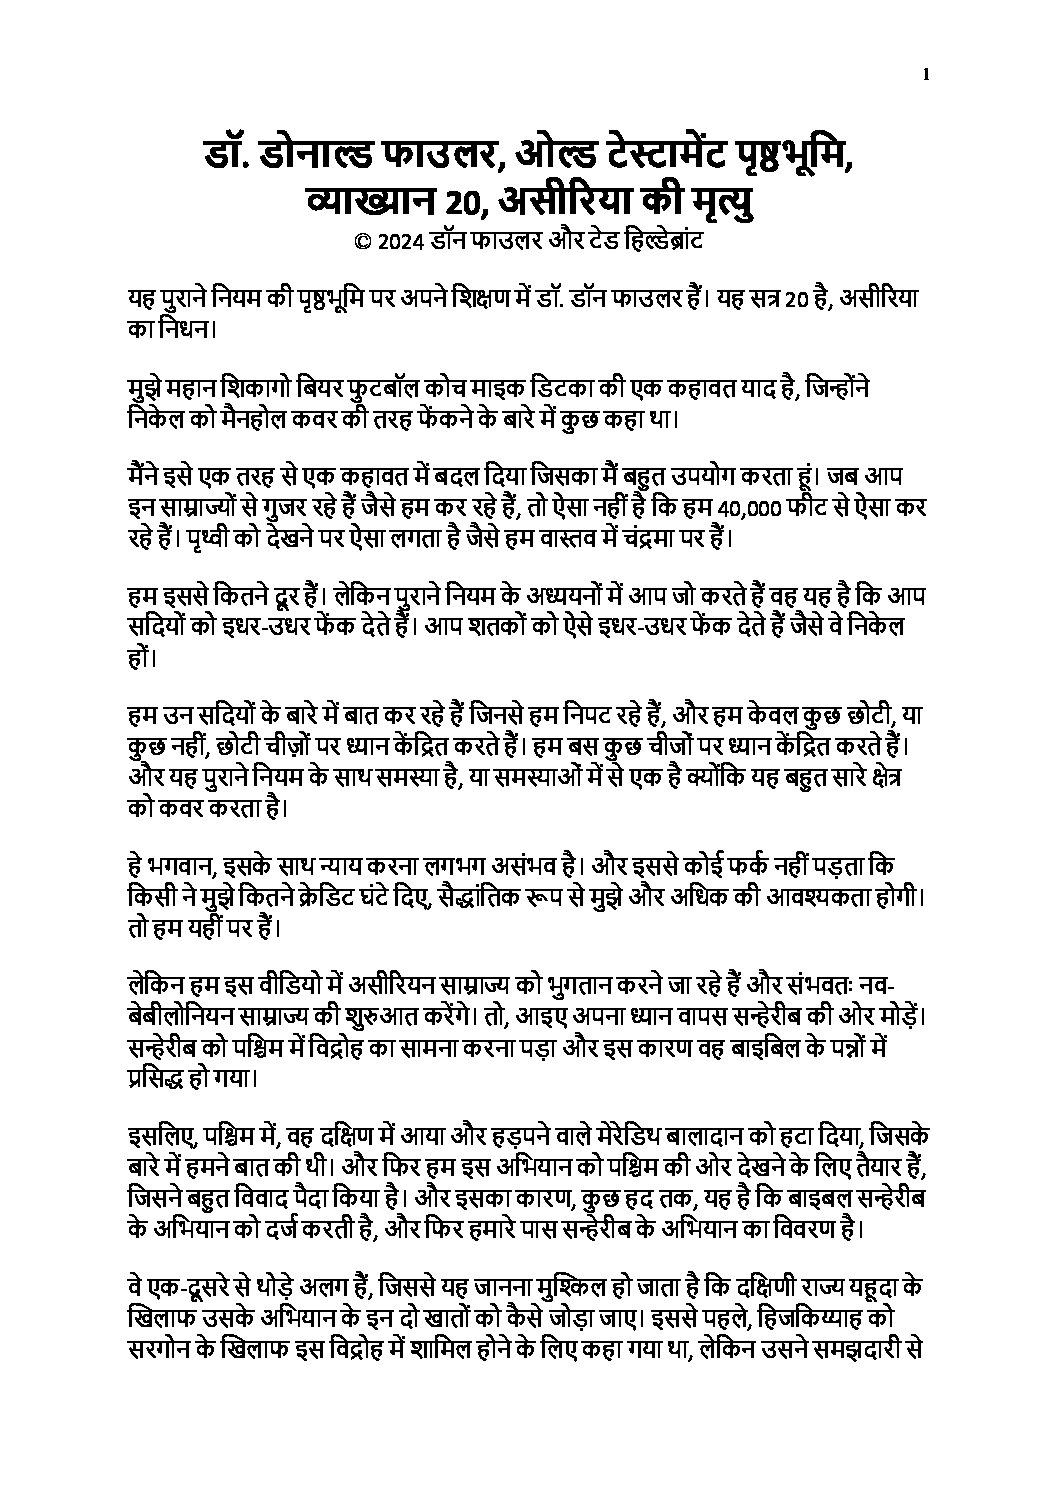 1
डॉ. डोनाल्ड फाउलर, ओल्ड टेस्टामेंट पृष्ठभूमि,
व्याख्यान 20, असीरिया की मृत्यु
© 2024 डॉन फाउलर और टेड हिल्डेब्रांट
यह पुराने नियम की पृष्ठभूमि पर अपने शिक्षण में डॉ. डॉन फाउलर हैं। यह सत्र 20 है, असीरिया
का निधन।
मुझे महान शिकागो बियर फुटबॉल कोच माइक डिटका की एक कहावत याद है, जिन्होंने
निकेल को मैनहोल कवर की तरह फेंकने के बारे में कुछ कहा था।
मैंने इसे एक तरह से एक कहावत में बदल दिया जिसका मैं बहुत उपयोग करता हूं। जब आप
इन साम्राज्यों से गुजर रहे हैं जैसे हम कर रहे हैं, तो ऐसा नहीं है कि हम 40,000 फीट से ऐसा कर
रहे हैं। पृथ्वी को देखने पर ऐसा लगता है जैसे हम वास्तव में चंद्रमा पर हैं।
हम इससे कितने दूर हैं। लेकिन पुराने नियम के अध्ययनों में आप जो करते हैं वह यह है कि आप
सदियों को इधर-उधर फेंक देते हैं। आप शतकों को ऐसे इधर-उधर फेंक देते हैं जैसे वे निकेल
हों।
हम उन सदियों के बारे में बात कर रहे हैं जिनसे हम निपट रहे हैं, और हम केवल कुछ छोटी, या
कुछ नहीं, छोटी चीज़ों पर ध्यान केंद्रित करते हैं। हम बस कुछ चीजों पर ध्यान केंद्रित करते हैं।
और यह पुराने नियम के साथ समस्या है, या समस्याओं में से एक है क्योंकि यह बहुत सारे क्षेत्र
को कवर करता है।
हे भगवान, इसके साथ न्याय करना लगभग असंभव है। और इससे कोई फर्क नहीं पड़ता कि
किसी ने मुझे कितने क्रेडिट घंटे दिए, सैद्धांतिक रूप से मुझे और अधिक की आवश्यकता होगी।
तो हम यहीं पर हैं।
लेकिन हम इस वीडियो में असीरियन साम्राज्य को भुगतान करने जा रहे हैं और संभवतः नव-
बेबीलोनियन साम्राज्य की शुरुआत करेंगे। तो, आइए अपना ध्यान वापस सन्हेरीब की ओर मोड़ें।
सन्हेरीब को पश्चिम में विद्रोह का सामना करना पड़ा और इस कारण वह बाइबिल के पन्नों में
प्रसिद्ध हो गया।
इसलिए, पश्चिम में, वह दक्षिण में आया और हड़पने वाले मेरेडिथ बालादान को हटा दिया, जिसके
बारे में हमने बात की थी। और फिर हम इस अभियान को पश्चिम की ओर देखने के लिए तैयार हैं,
जिसने बहुत विवाद पैदा किया है। और इसका कारण, कुछ हद तक, यह है कि बाइबल सन्हेरीब
के अभियान को दर्ज करती है, और फिर हमारे पास सन्हेरीब के अभियान का विवरण है।
वे एक-दूसरे से थोड़े अलग हैं, जिससे यह जानना मुश्किल हो जाता है कि दक्षिणी राज्य यहूदा के
खिलाफ उसके अभियान के इन दो खातों को कैसे जोड़ा जाए। इससे पहले, हिजकिय्याह को
सरगोन के खिलाफ इस विद्रोह में शामिल होने के लिए कहा गया था, लेकिन उसने समझदारी से